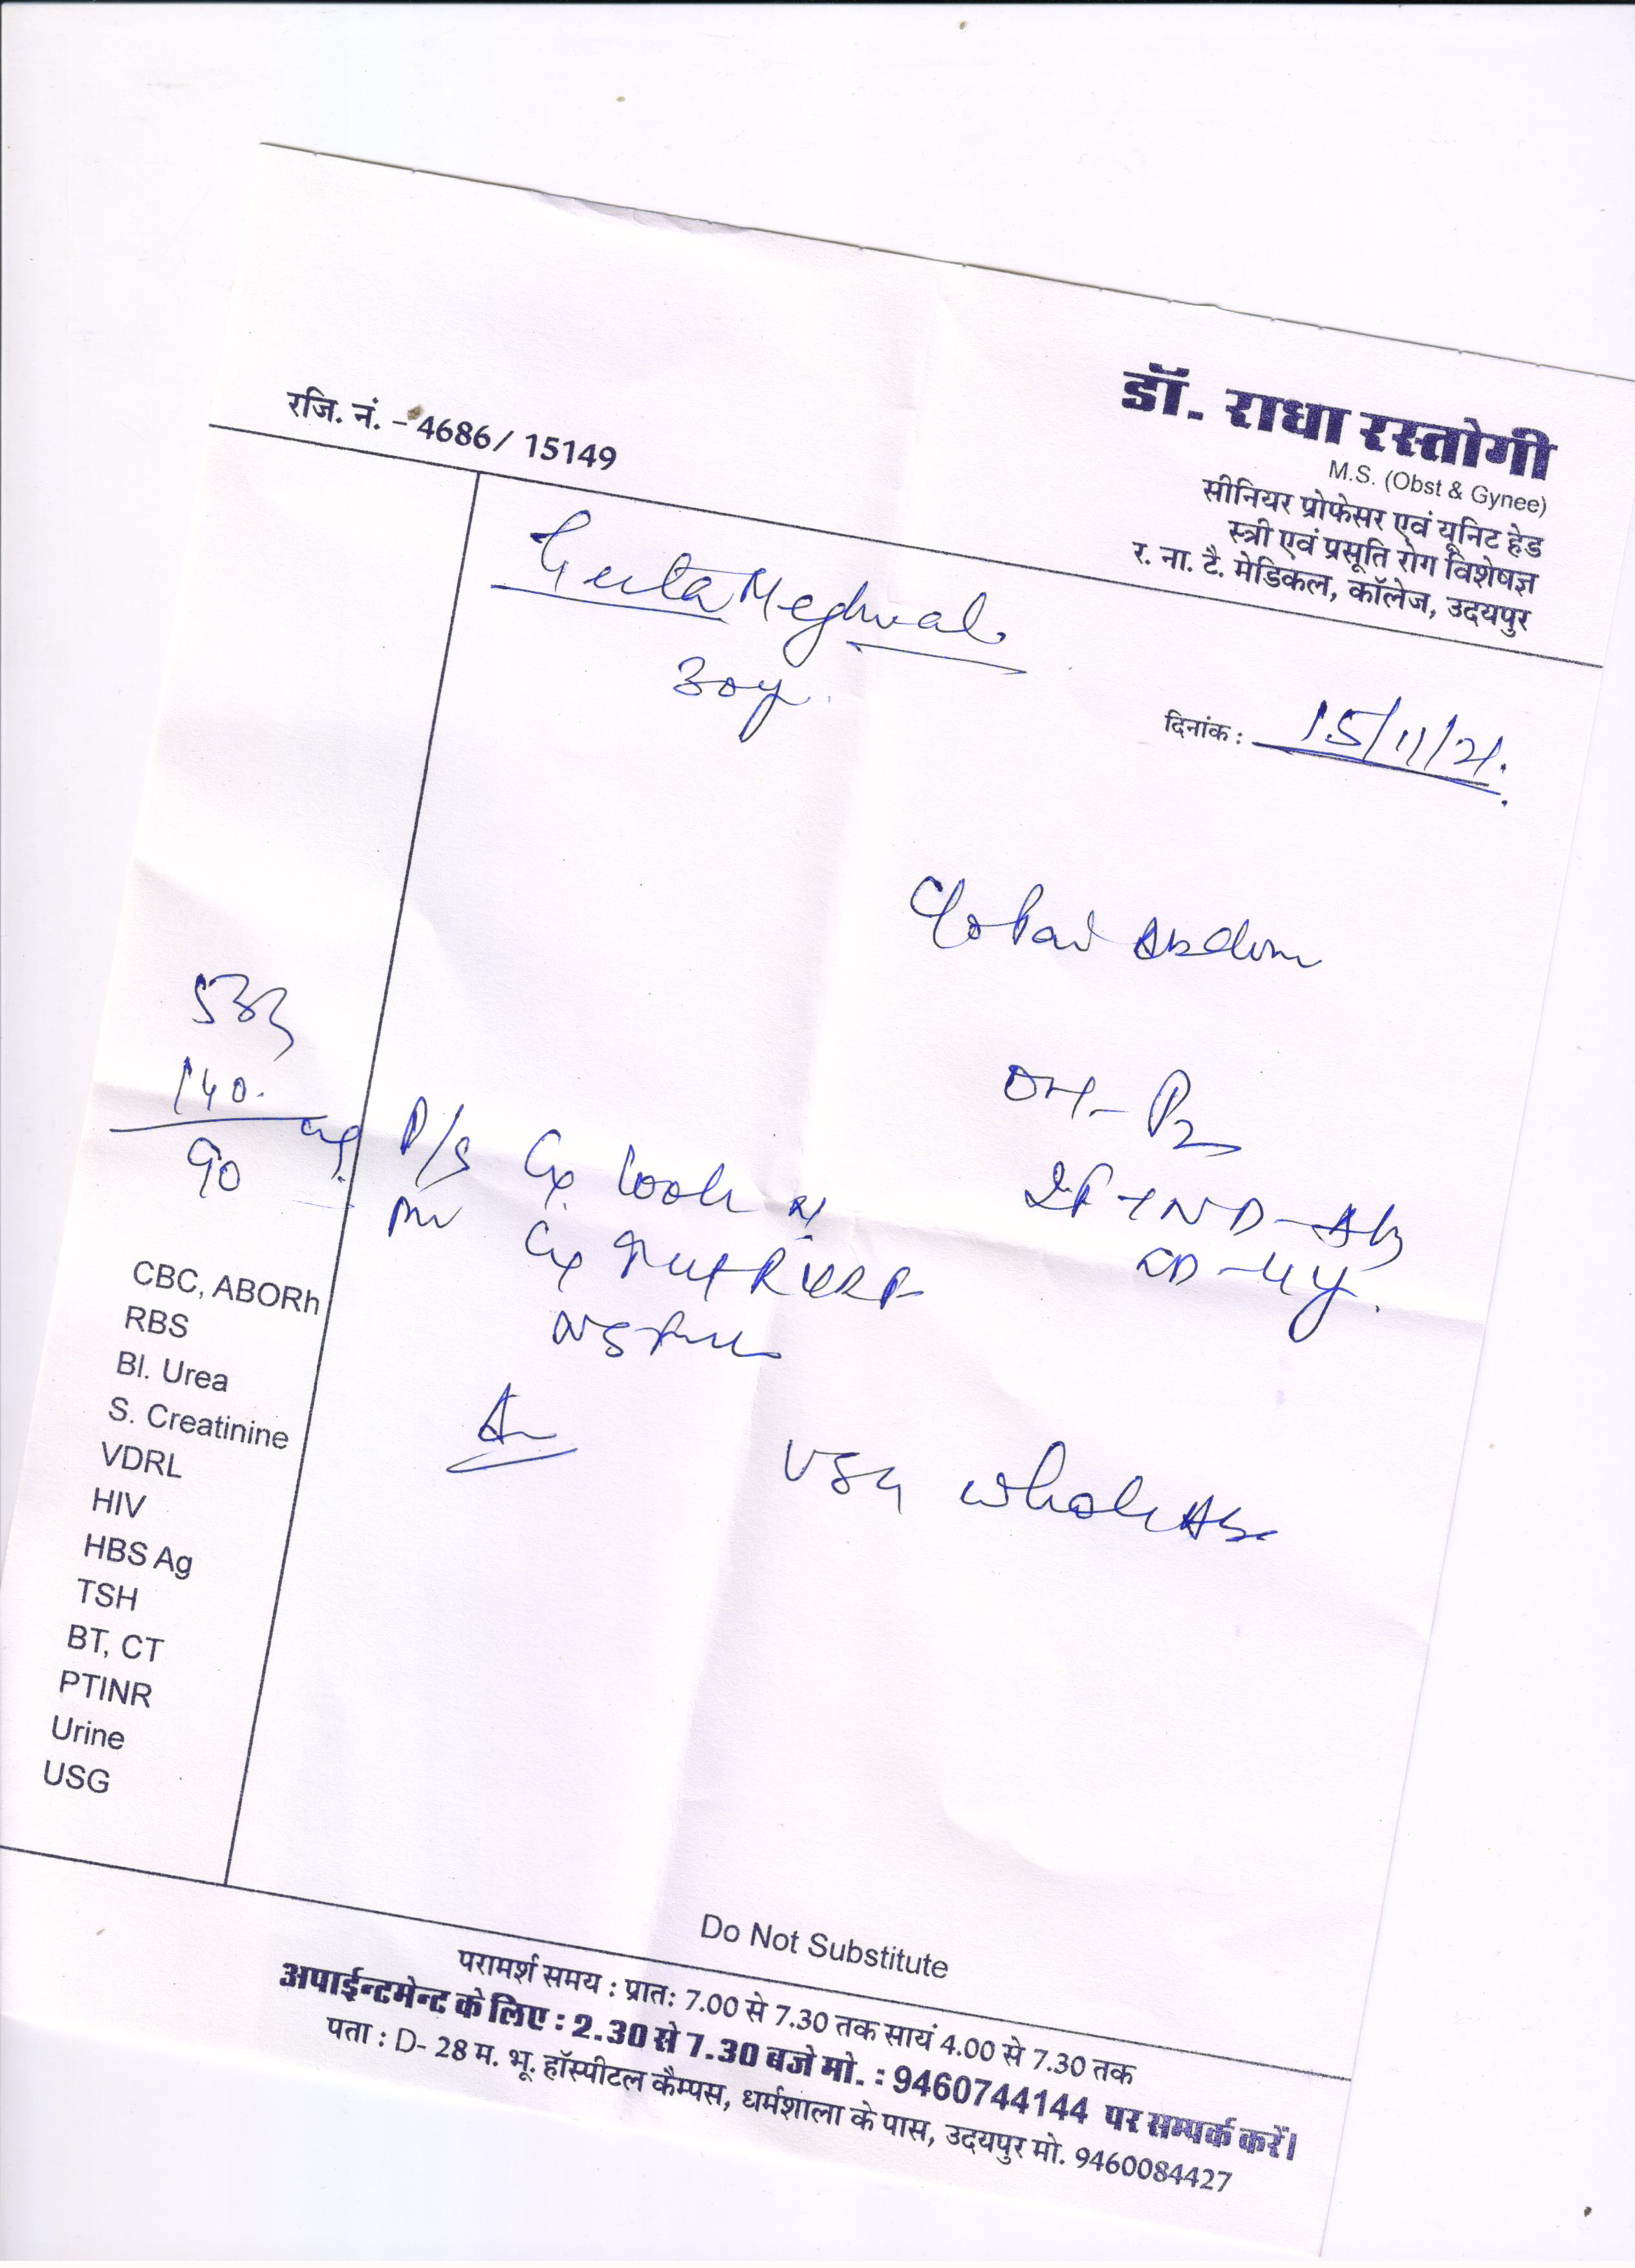 डॉ. राधा रस्तोगी
M.S. (Obst & Gynee)
सीनियर प्रोफेसर एवं यूनिट हेड
स्त्री एवं प्रसूति रोग विशेषज्ञ
र. ना. टै. मेडिकल, कॉलेज, उदयपुर
रजि. नं. - 4686/ 15149
Geeta Meghwal
30y
दिनांक : 15/11/21
c/o Pain Abdom
140
90
OH - P2
P/S Cx looks
2 FTND - Alb
LD - 4y
Cx
CBC, ABORh
RBS
Bl. Urea
S. Creatinine
VDRL
HIV
HBS Ag
TSH
BT, CT
PTINR
Urine
USG
USG whole Abd
Do Not Substitute
परामर्श समय : प्रातः 7.00 से 7.30 तक सायं 4.00 से 7.30 तक
अपाईन्टमेन्ट के लिए : 2.30 से 7.30 बजे मो. : 9460744144 पर सम्पर्क करें।
पता : D- 28 म. भू. हॉस्पीटल कैम्पस, धर्मशाला के पास, उदयपुर मो. 9460084427